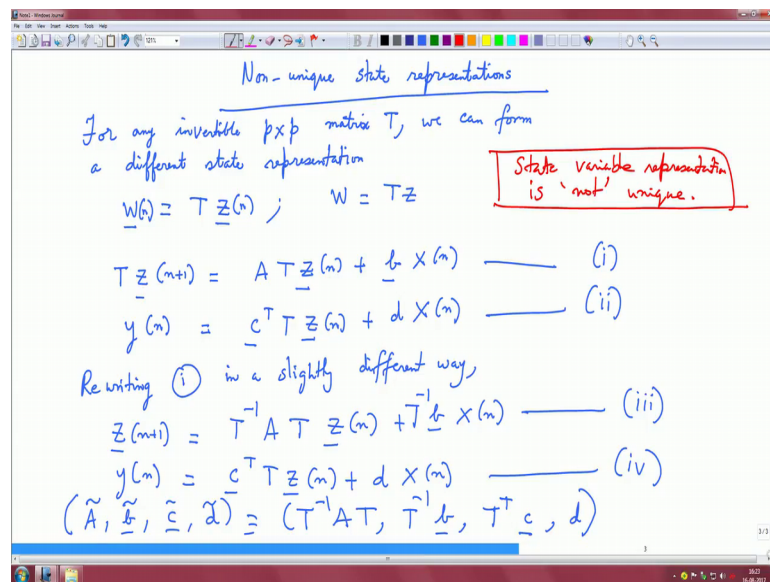 Note1 - Windows Journal
File Edit View Insert Actions Tools Help
121%
Non-unique state representations
For any invertible pxp matrix T, we can form
a different state representation
State variable representation
is 'not' unique.
W(n) = T Z(n) ; W = TZ
T Z(n+1) = A T Z(n) + b X(n) —— (i)
y(n) = c^T T Z(n) + d X(n) —— (ii)
Rewriting (i) in a slightly different way,
Z(n+1) = T^-1 A T Z(n) + T^-1 b X(n) —— (iii)
y(n) = c^T T Z(n) + d X(n) —— (iv)
(Ã, b̃, c̃, d̃) ≡ (T^-1 A T, T^-1 b, T^T c, d)
3/3
3
16:23